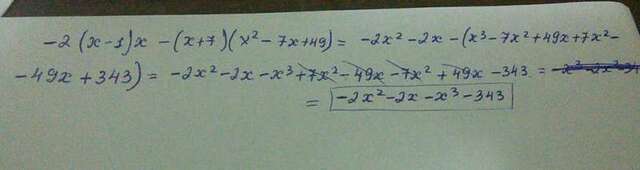 -2(x-1)x - (x+7)(x² - 7x+49) = -2x² - 2x - (x³ - 7x² + 49x + 7x² -
- 49x + 343) = -2x² - 2x - x³ + 7x² - 49x - 7x² + 49x - 343 =
= -2x² - 2x - x³ - 343